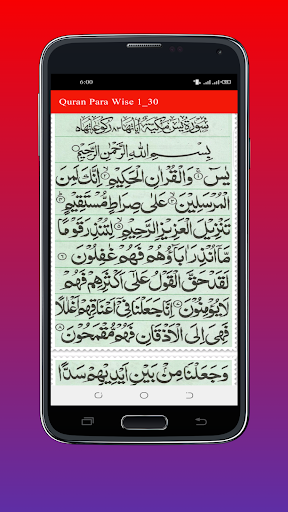 6:00
Quran Para Wise 1_30
سورة يس مكية اياتها ٨٣ ركوعاتها ٥
بِسْمِ اللهِ الرَّحْمٰنِ الرَّحِيْمِ
يٰسٓ ۚ وَالْقُرْاٰنِ الْحَكِيْمِ ۙ اِنَّكَ لَمِنَ
الْمُرْسَلِيْنَ ۙ عَلٰى صِرَاطٍ مُّسْتَقِيْمٍ ؕ
تَنْزِيْلَ الْعَزِيْزِ الرَّحِيْمِ ۙ لِتُنْذِرَ قَوْمًا
مَّاۤ اُنْذِرَ اٰبَآؤُهُمْ فَهُمْ غٰفِلُوْنَ
لَقَدْ حَقَّ الْقَوْلُ عَلٰۤى اَكْثَرِهِمْ فَهُمْ
لَا يُؤْمِنُوْنَ اِنَّا جَعَلْنَا فِيْۤ اَعْنَاقِهِمْ اَغْلٰلًا
فَهِيَ اِلَى الْاَذْقَانِ فَهُمْ مُّقْمَحُوْنَ
وَجَعَلْنَا مِنْۢ بَيْنِ اَيْدِيْهِمْ سَدًّا